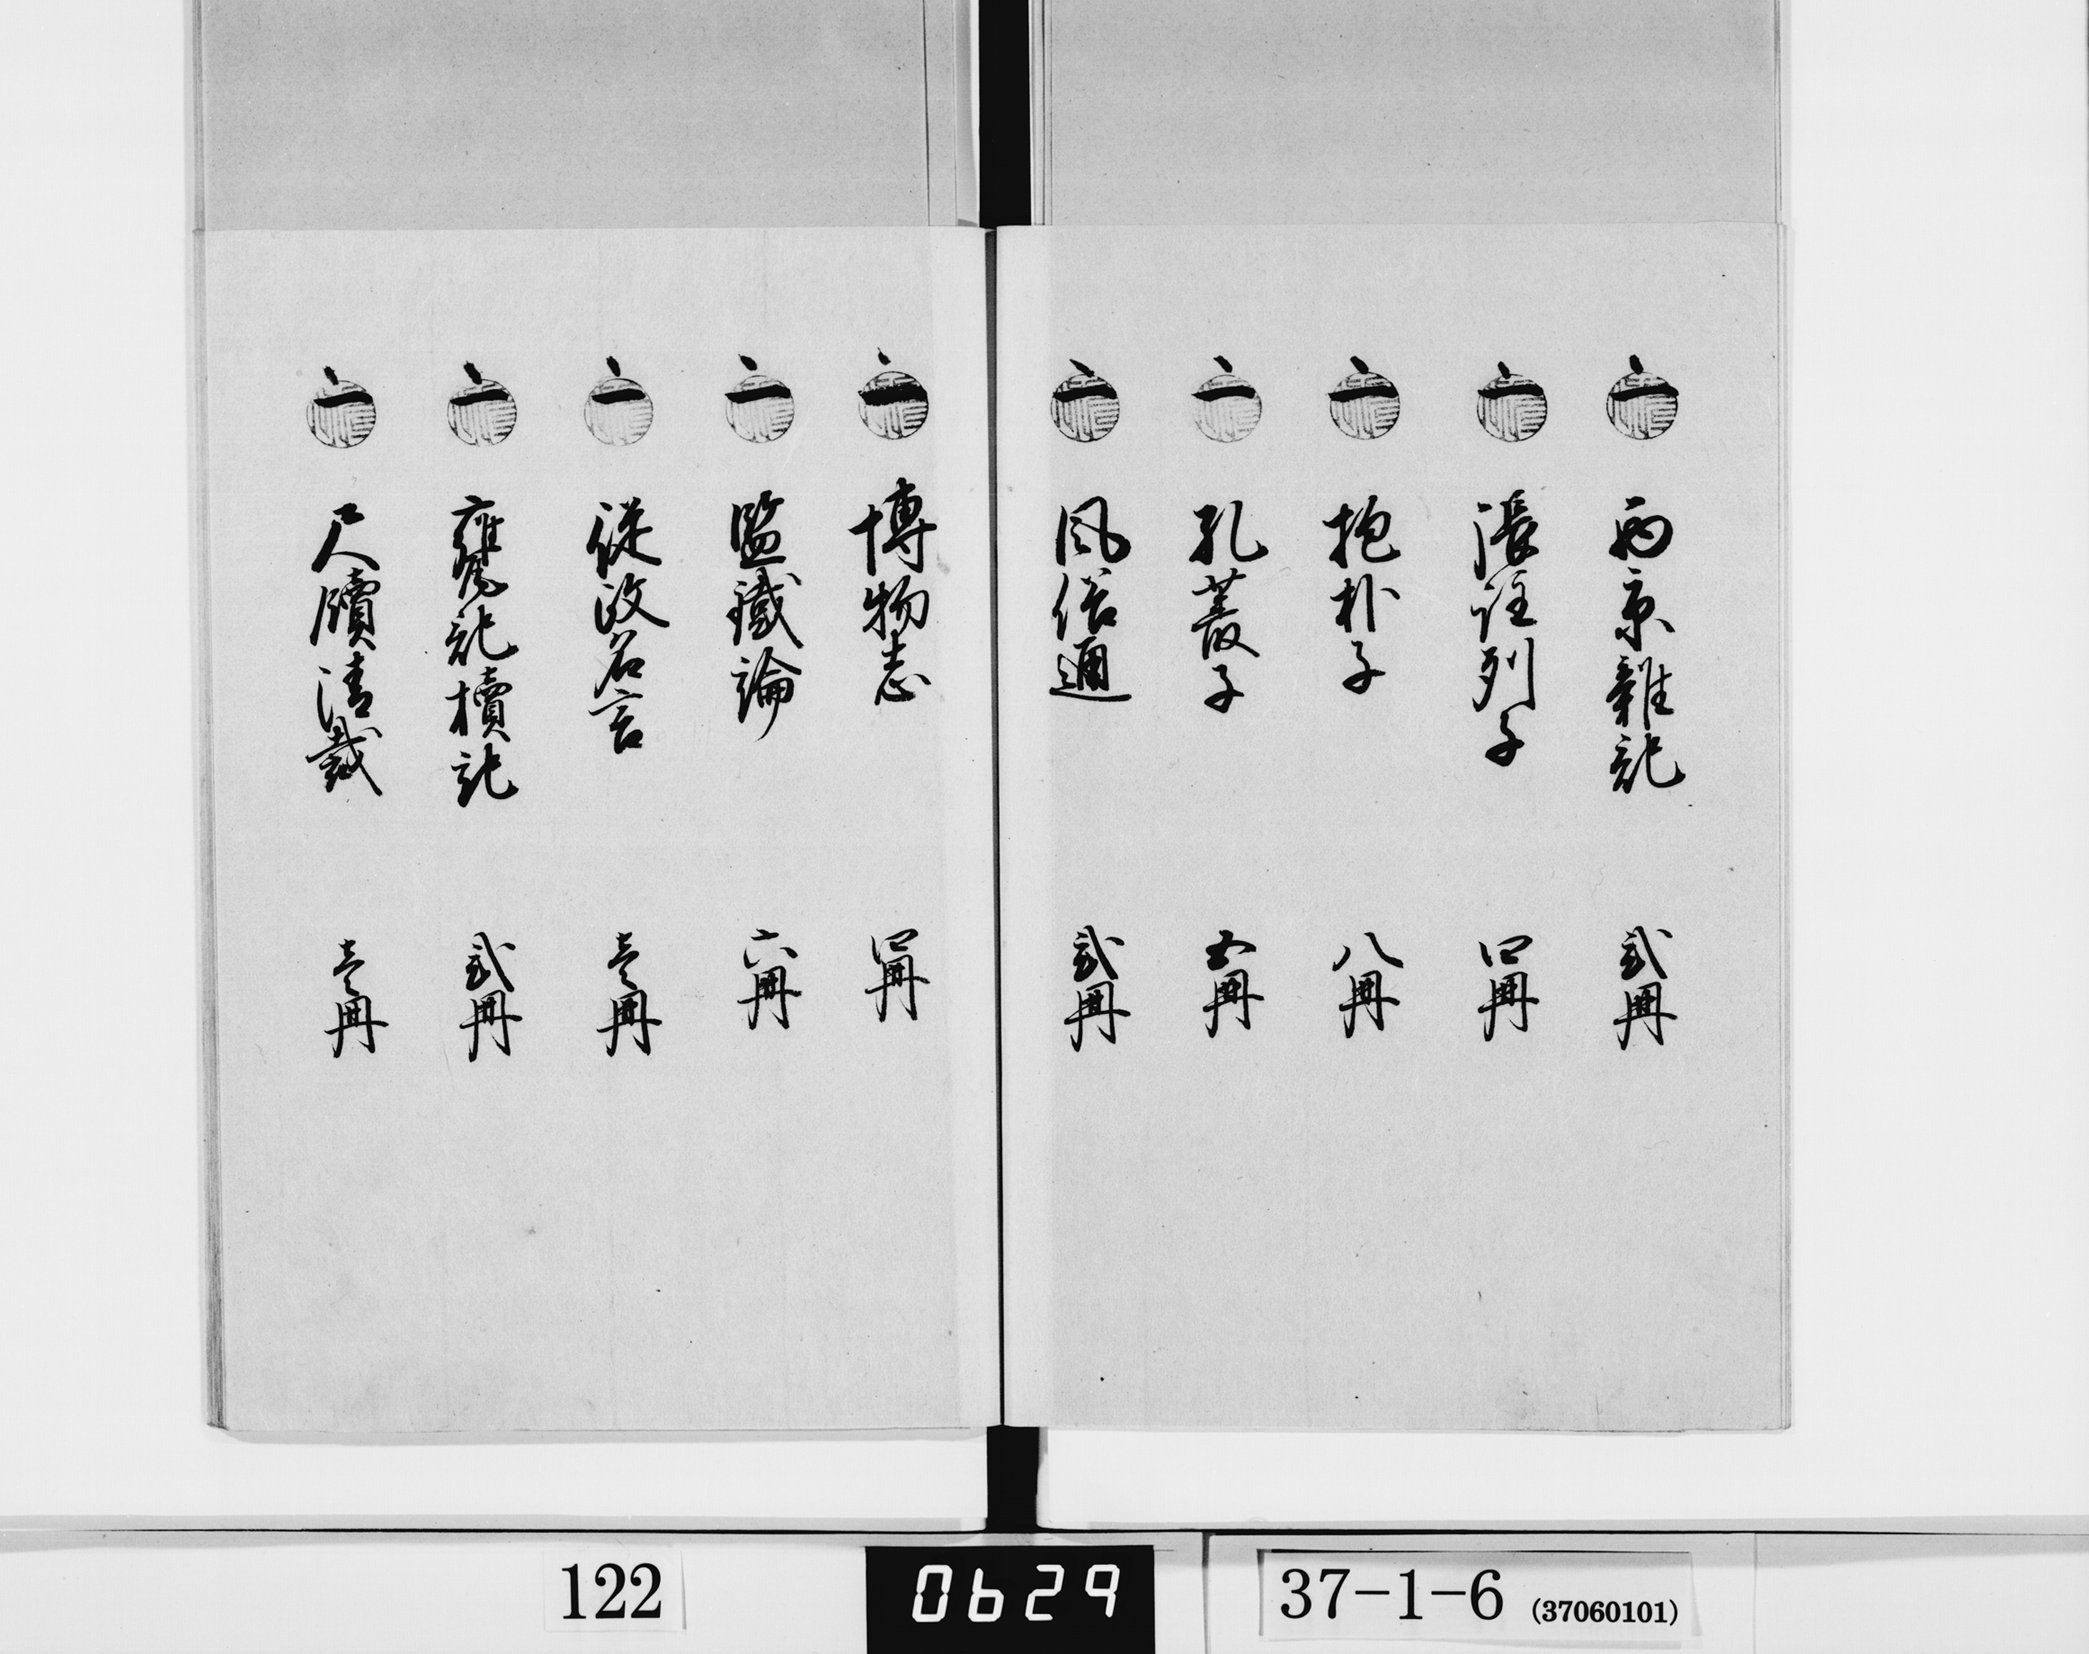 一 西京雜記 弐冊
一 張註列子 四冊
一 抱朴子 八冊
一 孔叢子 五冊
一 風俗通 弐冊
一 博物志 四冊
一 塩鐵論 六冊
一 従政名言 壱冊
一 甕記櫝記 弐冊
一 尺牘清裁 壱冊
122
0629
37-1-6 (37060101)